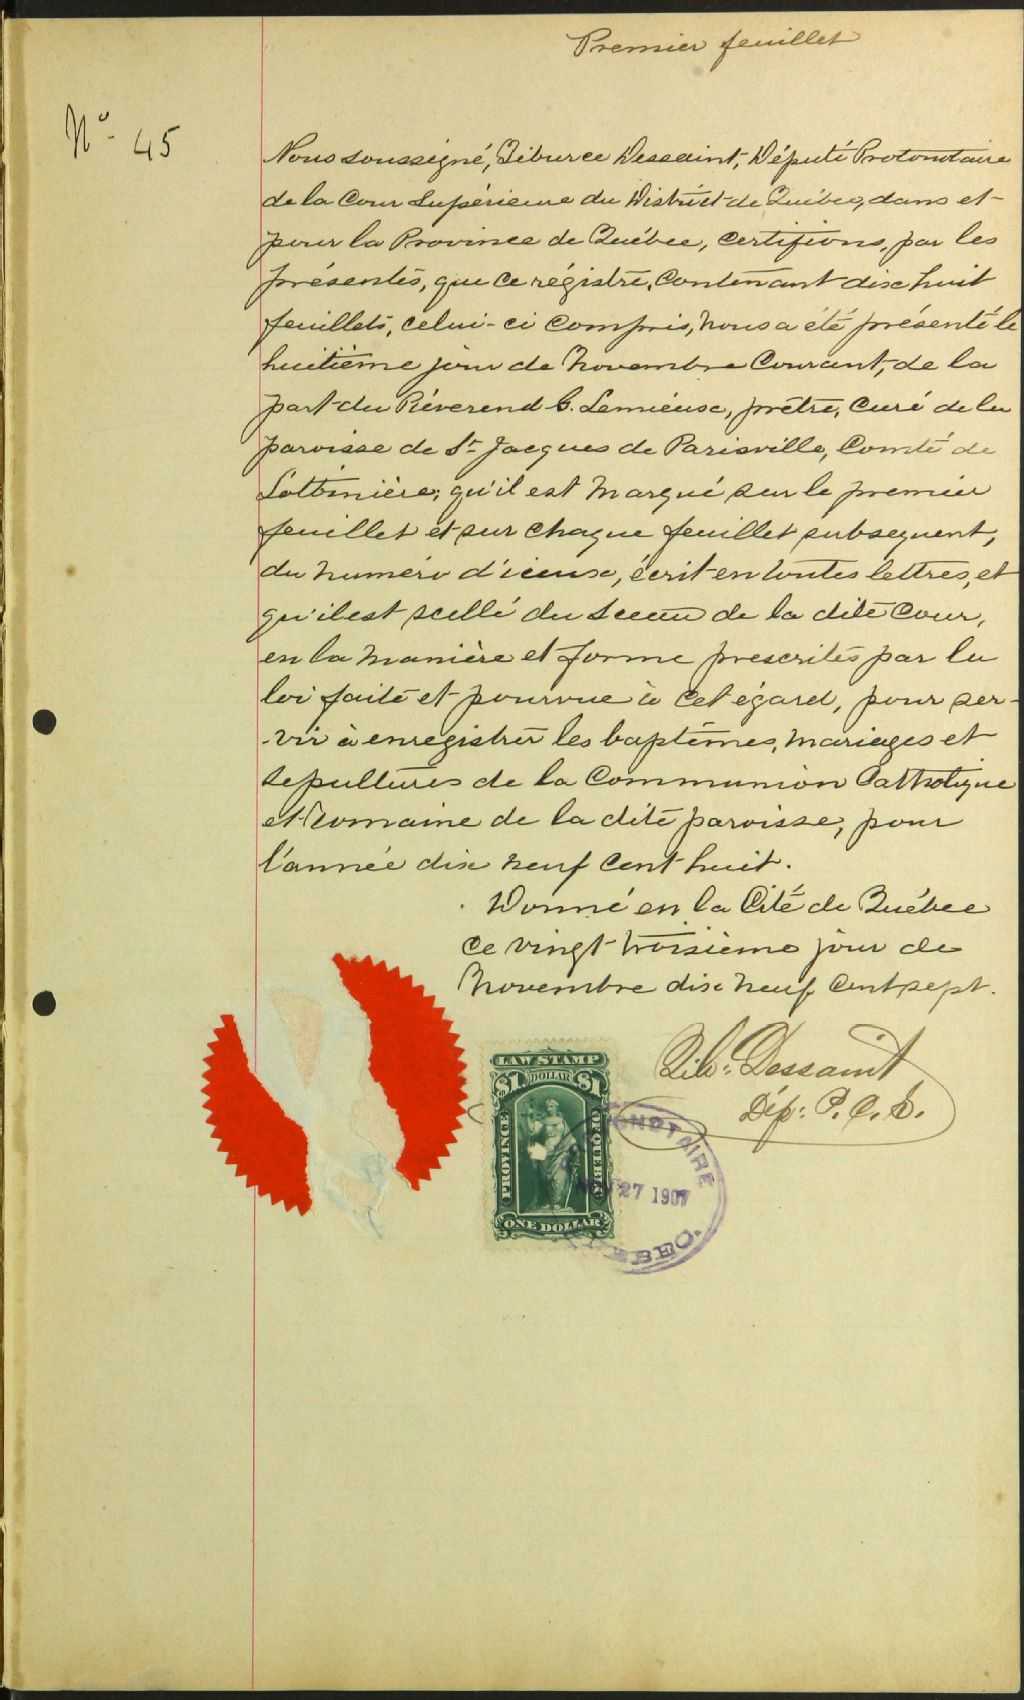 Premier feuillet
No. 45
Nous soussigné, Tiburce Dessaint, Député Protonotaire
de la Cour Supérieure du District de Québec, dans et
pour la Province de Québec, certifions, par les
présentes, que ce régistre, Contenant dix huit
feuillets, celui-ci compris, nous a été présenté le
huitième jour de Novembre Courant, de la
part du Réverend C. Lemieux, prêtre, Curé de la
paroisse de St Jacques de Parisville, Comté de
Lotbinière; qu'il est Marqué sur le premier
feuillet et sur chaque feuillet subsequent,
du numéro d'iceux, écrit en toutes lettres, et
qu'il est scellé du Sceau de la dite Cour,
en la Manière et forme prescrites par la
loi faite et pourvue à cet égard, pour ser-
-vir à enregistrer les baptêmes, Mariages et
sepultures de la Communion Catholique
et Romaine de la dite paroisse, pour
l'année dix neuf Cent huit.
Donné en la Cité de Québec
ce vingt troisième jour de
Novembre dix neuf Cent sept.
Tib. Dessaint
Dép: P. C. S.
LAW STAMP
$1 DOLLAR $1
PROVINCE OF QUEBEC
ONE DOLLAR
PROTONOTAIRE
NOV 27 1907
QUEBEC